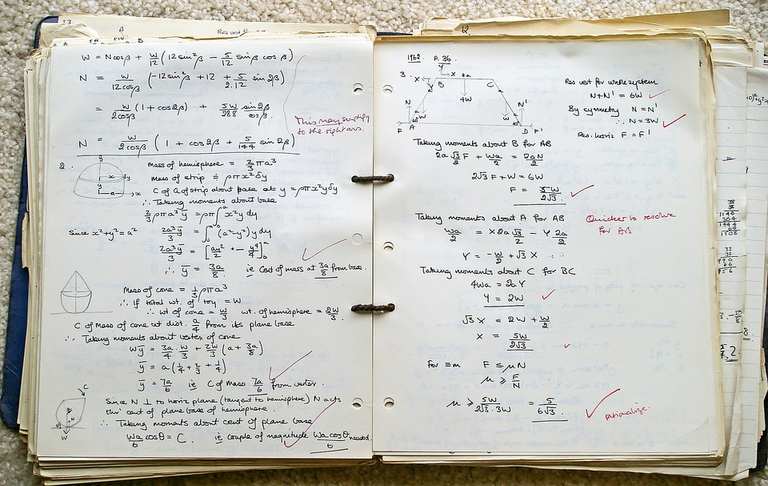 W = Ncosβ + W/12 (12 sin²β − 5/12 sinβ cosβ)
N = W/12cosβ (−12sin²β + 12 + 5/2.12 sin2β)
= W/2cosβ (1 + cos2β) + 5W/288 sin2β/cosβ
This may simplify
to the right ans.
N = W/2cosβ (1 + cos2β + 5/144 sin2β)
2. Mass of hemisphere = 2/3 πρa³
Mass of strip = ρπx²δy
C of G of strip about base at y = ρπx²yδy
∴ Taking moments about base
2/3 ρπa³ȳ = ρπ∫x²y dy
Since x²+y²=a² 2a³ȳ/3 = ∫(a²−y²)y dy
2a³ȳ/3 =
∴ ȳ = 3a/8 ie Cent of mass at 3a/8 from base.
Mass of cone = 1/3 ρπa³
∴ If total wt. of toy = W
∴ wt of cone = W/3 wt. of hemisphere = 2W/3
C of Mass of cone at dist. a/4 from its plane base
∴ Taking moments about vertex of cone
Wȳ = 3a/4 W/3 + 2W/3 (a + 3a/8)
ȳ = a(1/4 + 2/3 + 1/4)
ȳ = 7a/6 ie C of Mass 7a/6 from vertex.
Since N ⊥ to horiz plane (tangent to hemisphere) N acts
thro' cent of plane base of hemisphere.
∴ Taking moments about cent of plane base
Wa/6 cosθ = C. ie couple of magnitude Wa cosθ/6 needed
1962. P. 36.
3. X Y X B C
4W
N N'
F A D F'
Res vert for whole system
N+N' = 6W
By symmetry N = N'
∴ N = 3W
Res. horiz F = F'
Taking moments about B for AB
2a √3/2 F + Wa/2 = 2aN/2
2√3 F + W = 6W
F = 5W/2√3
Taking moments about A for AB
Quicker to resolve
for AB
Wa/2 = X2a√3/2 − Y 2a/2
Y = −W/2 + √3 X
Taking moments about C for BC
4Wa = 2aY
Y = 2W
√3 X = 2W + W/2
X = 5W/2√3
for ≡m F ≤ μN
μ ≥ F/N
μ ≥ 5W/2√3.3W = 5/6√3
rationalise.